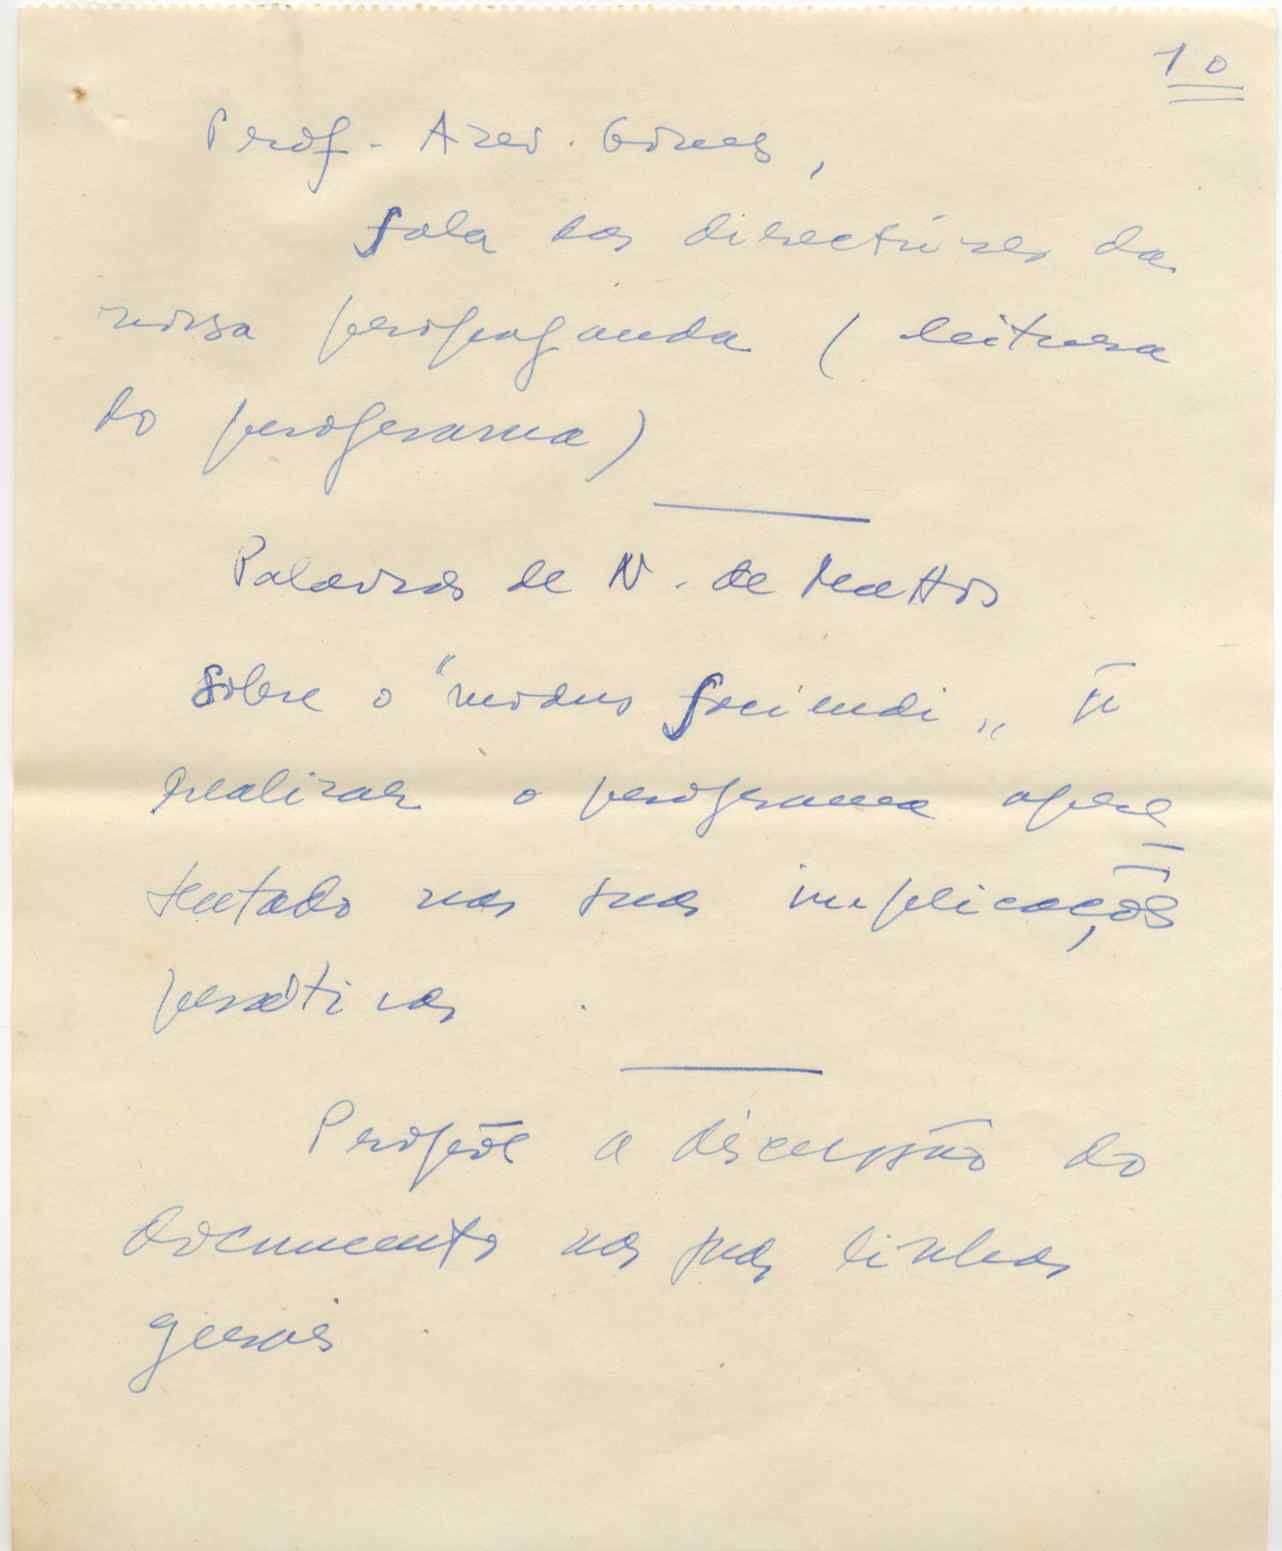 10
Prof. Azev. Gomes,
fala das directrizes da
nossa propaganda (leitura
do programa)
Palavras de N. de Mattos
sobre o "modus faciendi"
realizar o programa apre
sentado nas suas implicações
práticas
Propõe a discussão do
documento nas suas linhas
gerais